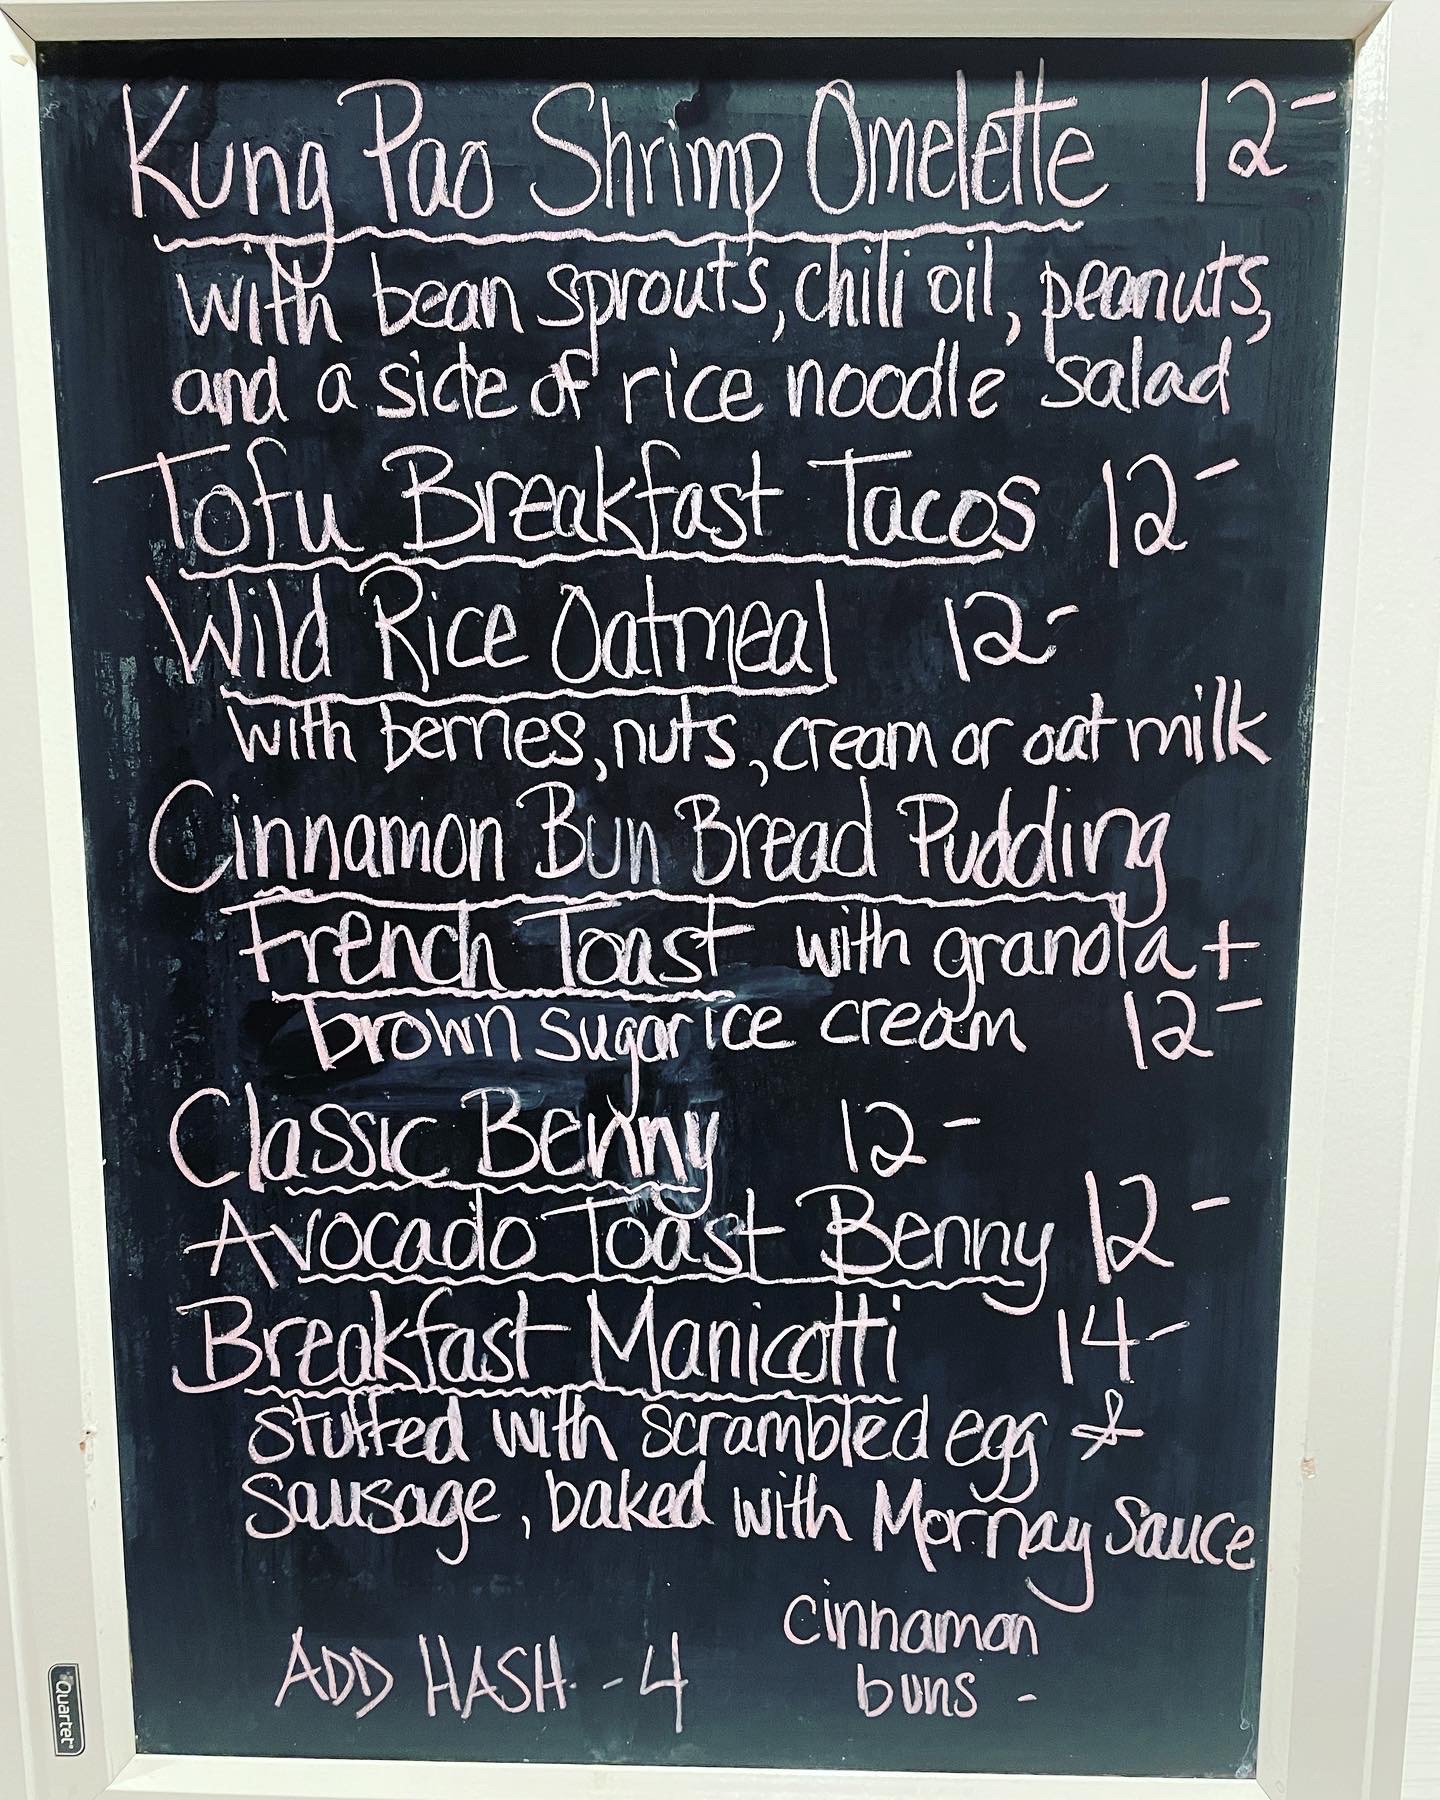 Kung Pao Shrimp Omelette 12-
with bean sprouts, chili oil, peanuts,
and a side of rice noodle salad
Tofu Breakfast Tacos 12-
Wild Rice Oatmeal 12-
with berries, nuts, cream or oat milk
Cinnamon Bun Bread Pudding
French Toast with granola +
brown sugar ice cream 12-
Classic Benny 12-
Avocado Toast Benny 12-
Breakfast Manicotti 14-
stuffed with scrambled egg &
sausage, baked with Mornay Sauce
cinnamon
ADD HASH - 4 buns -
Quartet